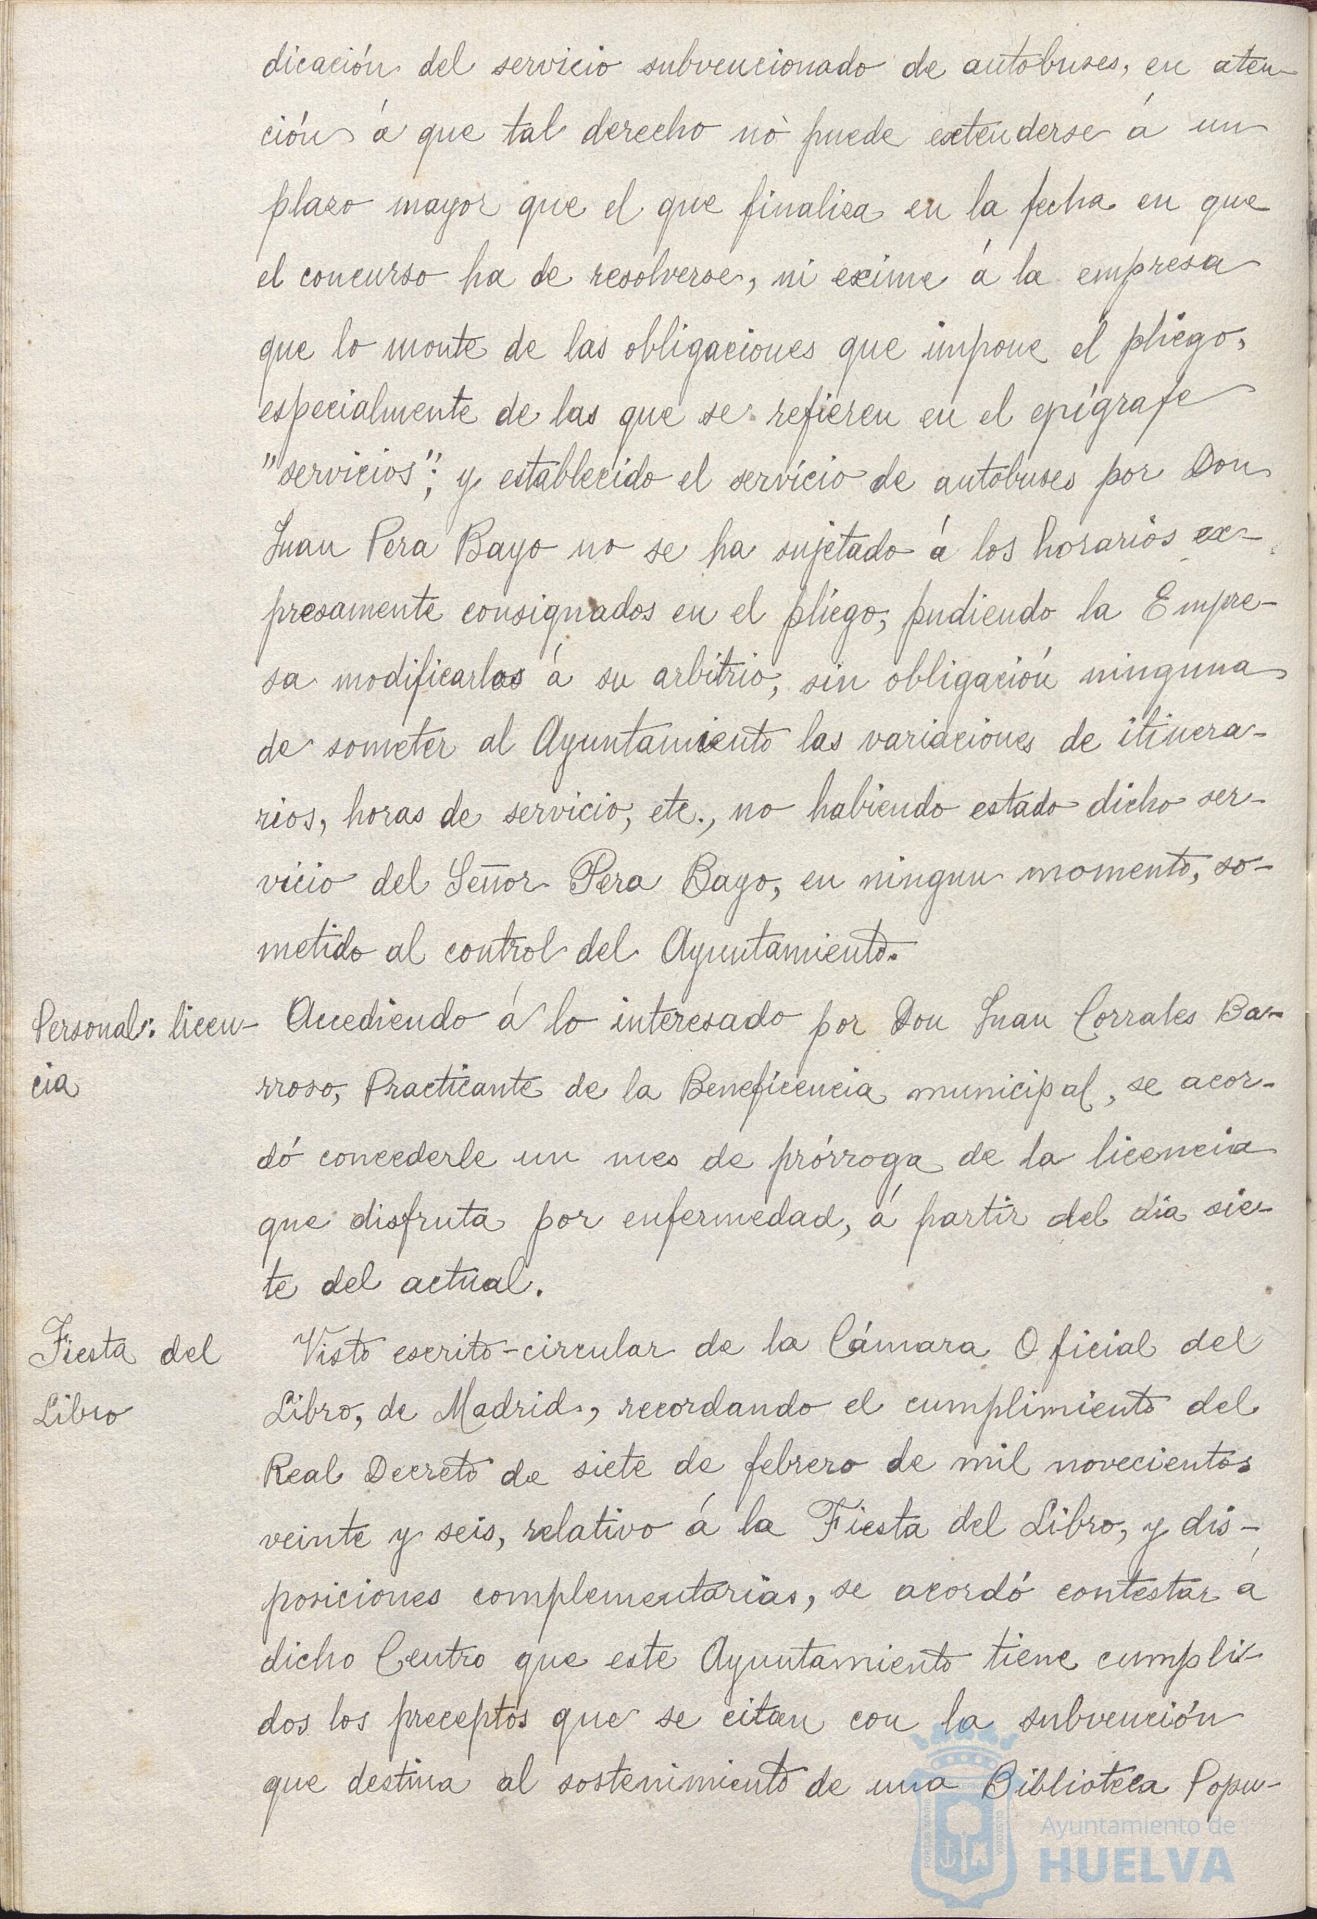 dicación del servicio subvencionado de autobuses, en aten-
ción á que tal derecho nó puede extenderse á un
plazo mayor que el que finaliza en la fecha en que
el concurso ha de resolverse, ni exime á la empresa
que lo monte de las obligaciones que impone el pliego,
especialmente de las que se refieren en el epígrafe
"servicios"; y establecido el servicio de autobuses por Don
Juan Pera Bayo no se ha sujetado á los horarios ex-
presamente consignados en el pliego, pudiendo la Empre-
sa modificarlos á su arbitrio, sin obligación ninguna
de someter al Ayuntamiento las variaciones de itinera-
rios, horas de servicio, etc., no habiendo estado dicho ser-
vicio del Señor Pera Bayo, en ningun momento, so-
metido al control del Ayuntamiento.
Personal: licen-
cia
Accediendo á lo interesado por Don Juan Corrales Ba-
rroso, Practicante de la Beneficencia municipal, se acor-
dó concederle un mes de prórroga de la licencia
que disfruta por enfermedad, á partir del dia sie-
te del actual.
Fiesta del
Libro
Visto escrito-circular de la Cámara Oficial del
Libro, de Madrid, recordando el cumplimiento del
Real Decreto de siete de febrero de mil novecientos
veinte y seis, relativo á la Fiesta del Libro, y dis-
posiciones complementarias, se acordó contestar á
dicho Centro que este Ayuntamiento tiene cumpli-
dos los preceptos que se citan con la subvención
que destina al sostenimiento de una Biblioteca Popu-
Ayuntamiento de
HUELVA